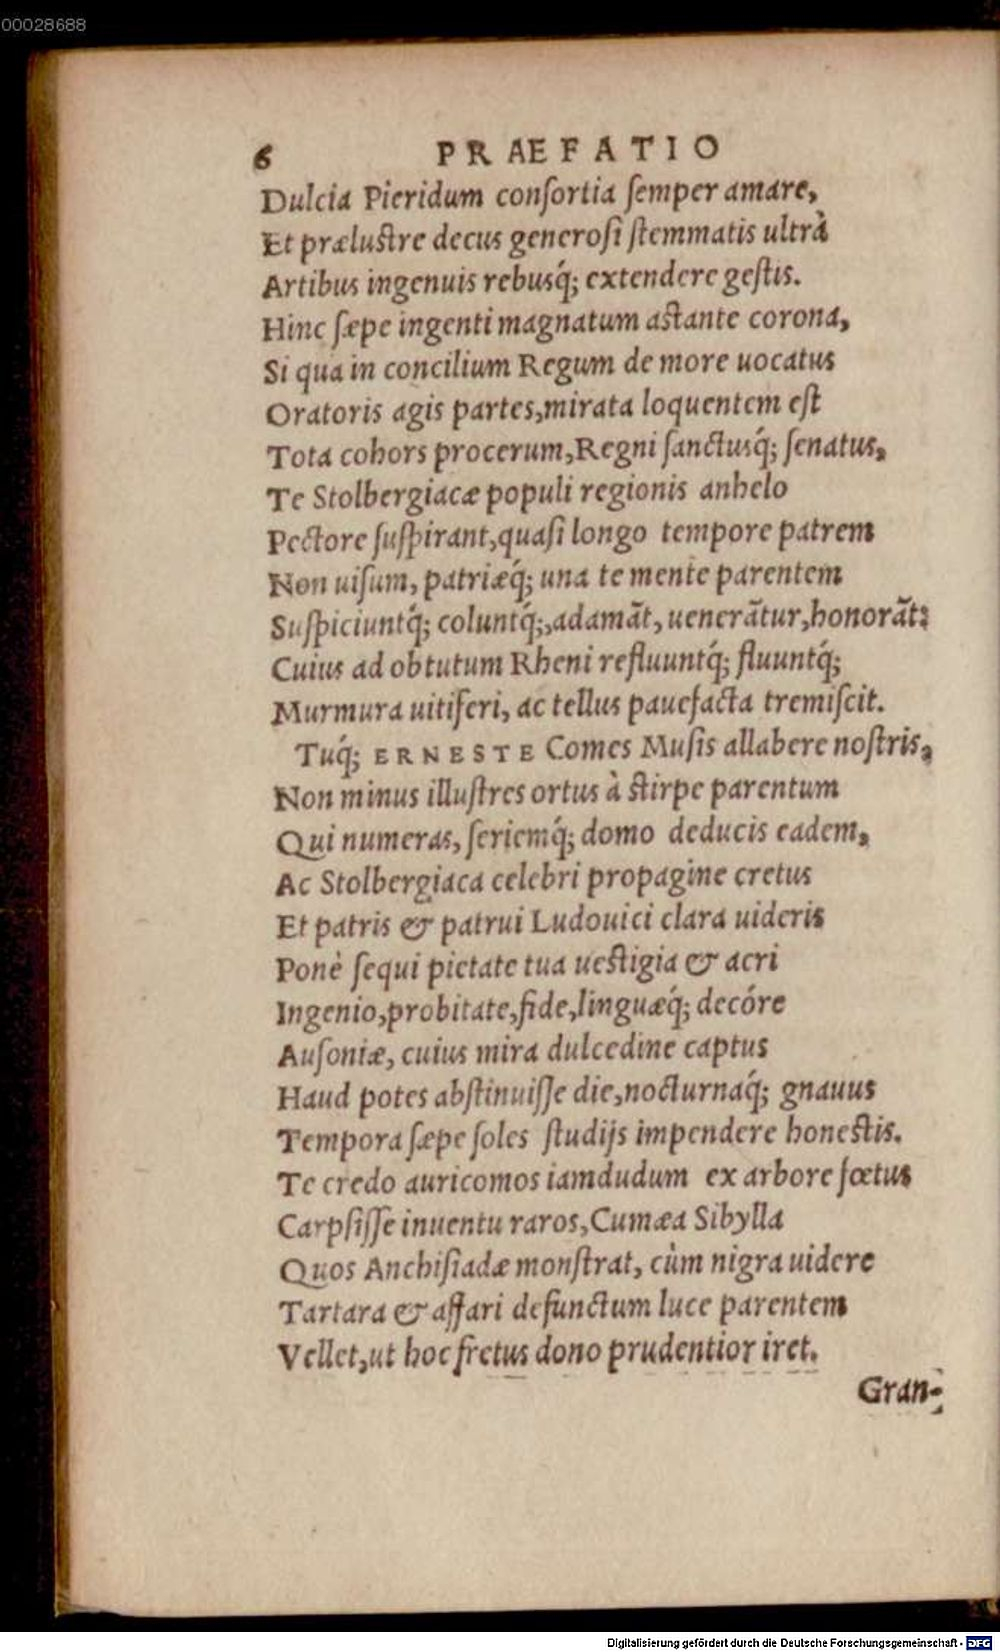 00028688
6 PRAEFATIO
Dulcia Pieridum conſortia ſemper amare,
Et prælustre decus generoſi ſtemmatis ultrà
Artibus ingenuis rebusq́; extendere geſtis.
Hinc ſæpe ingenti magnatum astante corona,
Si qua in concilium Regum de more uocatus
Oratoris agis partes,mirata loquentem eſt
Tota cohors procerum,Regni ſanctusq́; ſenatus,
Te Stolbergiacæ populi regionis anhelo
Pectore ſuſpirant,quaſi longo tempore patrem
Non uiſum, patriæq́; una te mente parentem
Suſpiciuntq́; coluntq́;,adamãt, uenerãtur,honorãt:
Cuius ad obtutum Rheni refluuntq́; fluuntq́;
Murmura uitiferi, ac tellus pauefacta tremiſcit.
Tuq́; ERNESTE Comes Muſis allabere noſtris,
Non minus illuſtres ortus à stirpe parentum
Qui numeras, ſeriemq́; domo deducis eadem,
Ac Stolbergiaca celebri propagine cretus
Et patris & patrui Ludouici clara uideris
Ponè ſequi pietate tua uestigia & acri
Ingenio,probitate,fide,linguæq́; decóre
Auſoniæ, cuius mira dulcedine captus
Haud potes abſtinuiſſe die,nocturnaq́; gnauus
Tempora ſæpe ſoles ſtudijs impendere honestis.
Te credo auricomos iamdudum ex arbore fœtus
Carpſiſſe inuentu raros,Cumæa Sibylla
Quos Anchiſiadæ monſtrat, cùm nigra uidere
Tartara & affari defunctum luce parentem
Vellet,ut hoc fretus dono prudentior iret.
Gran-
Digitalisierung gefördert durch die Deutsche Forschungsgemeinschaft - DFG